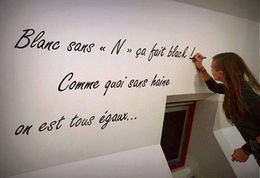 Blanc sans « N » ça fait black !
Comme quoi sans haine
on est tous égaux...